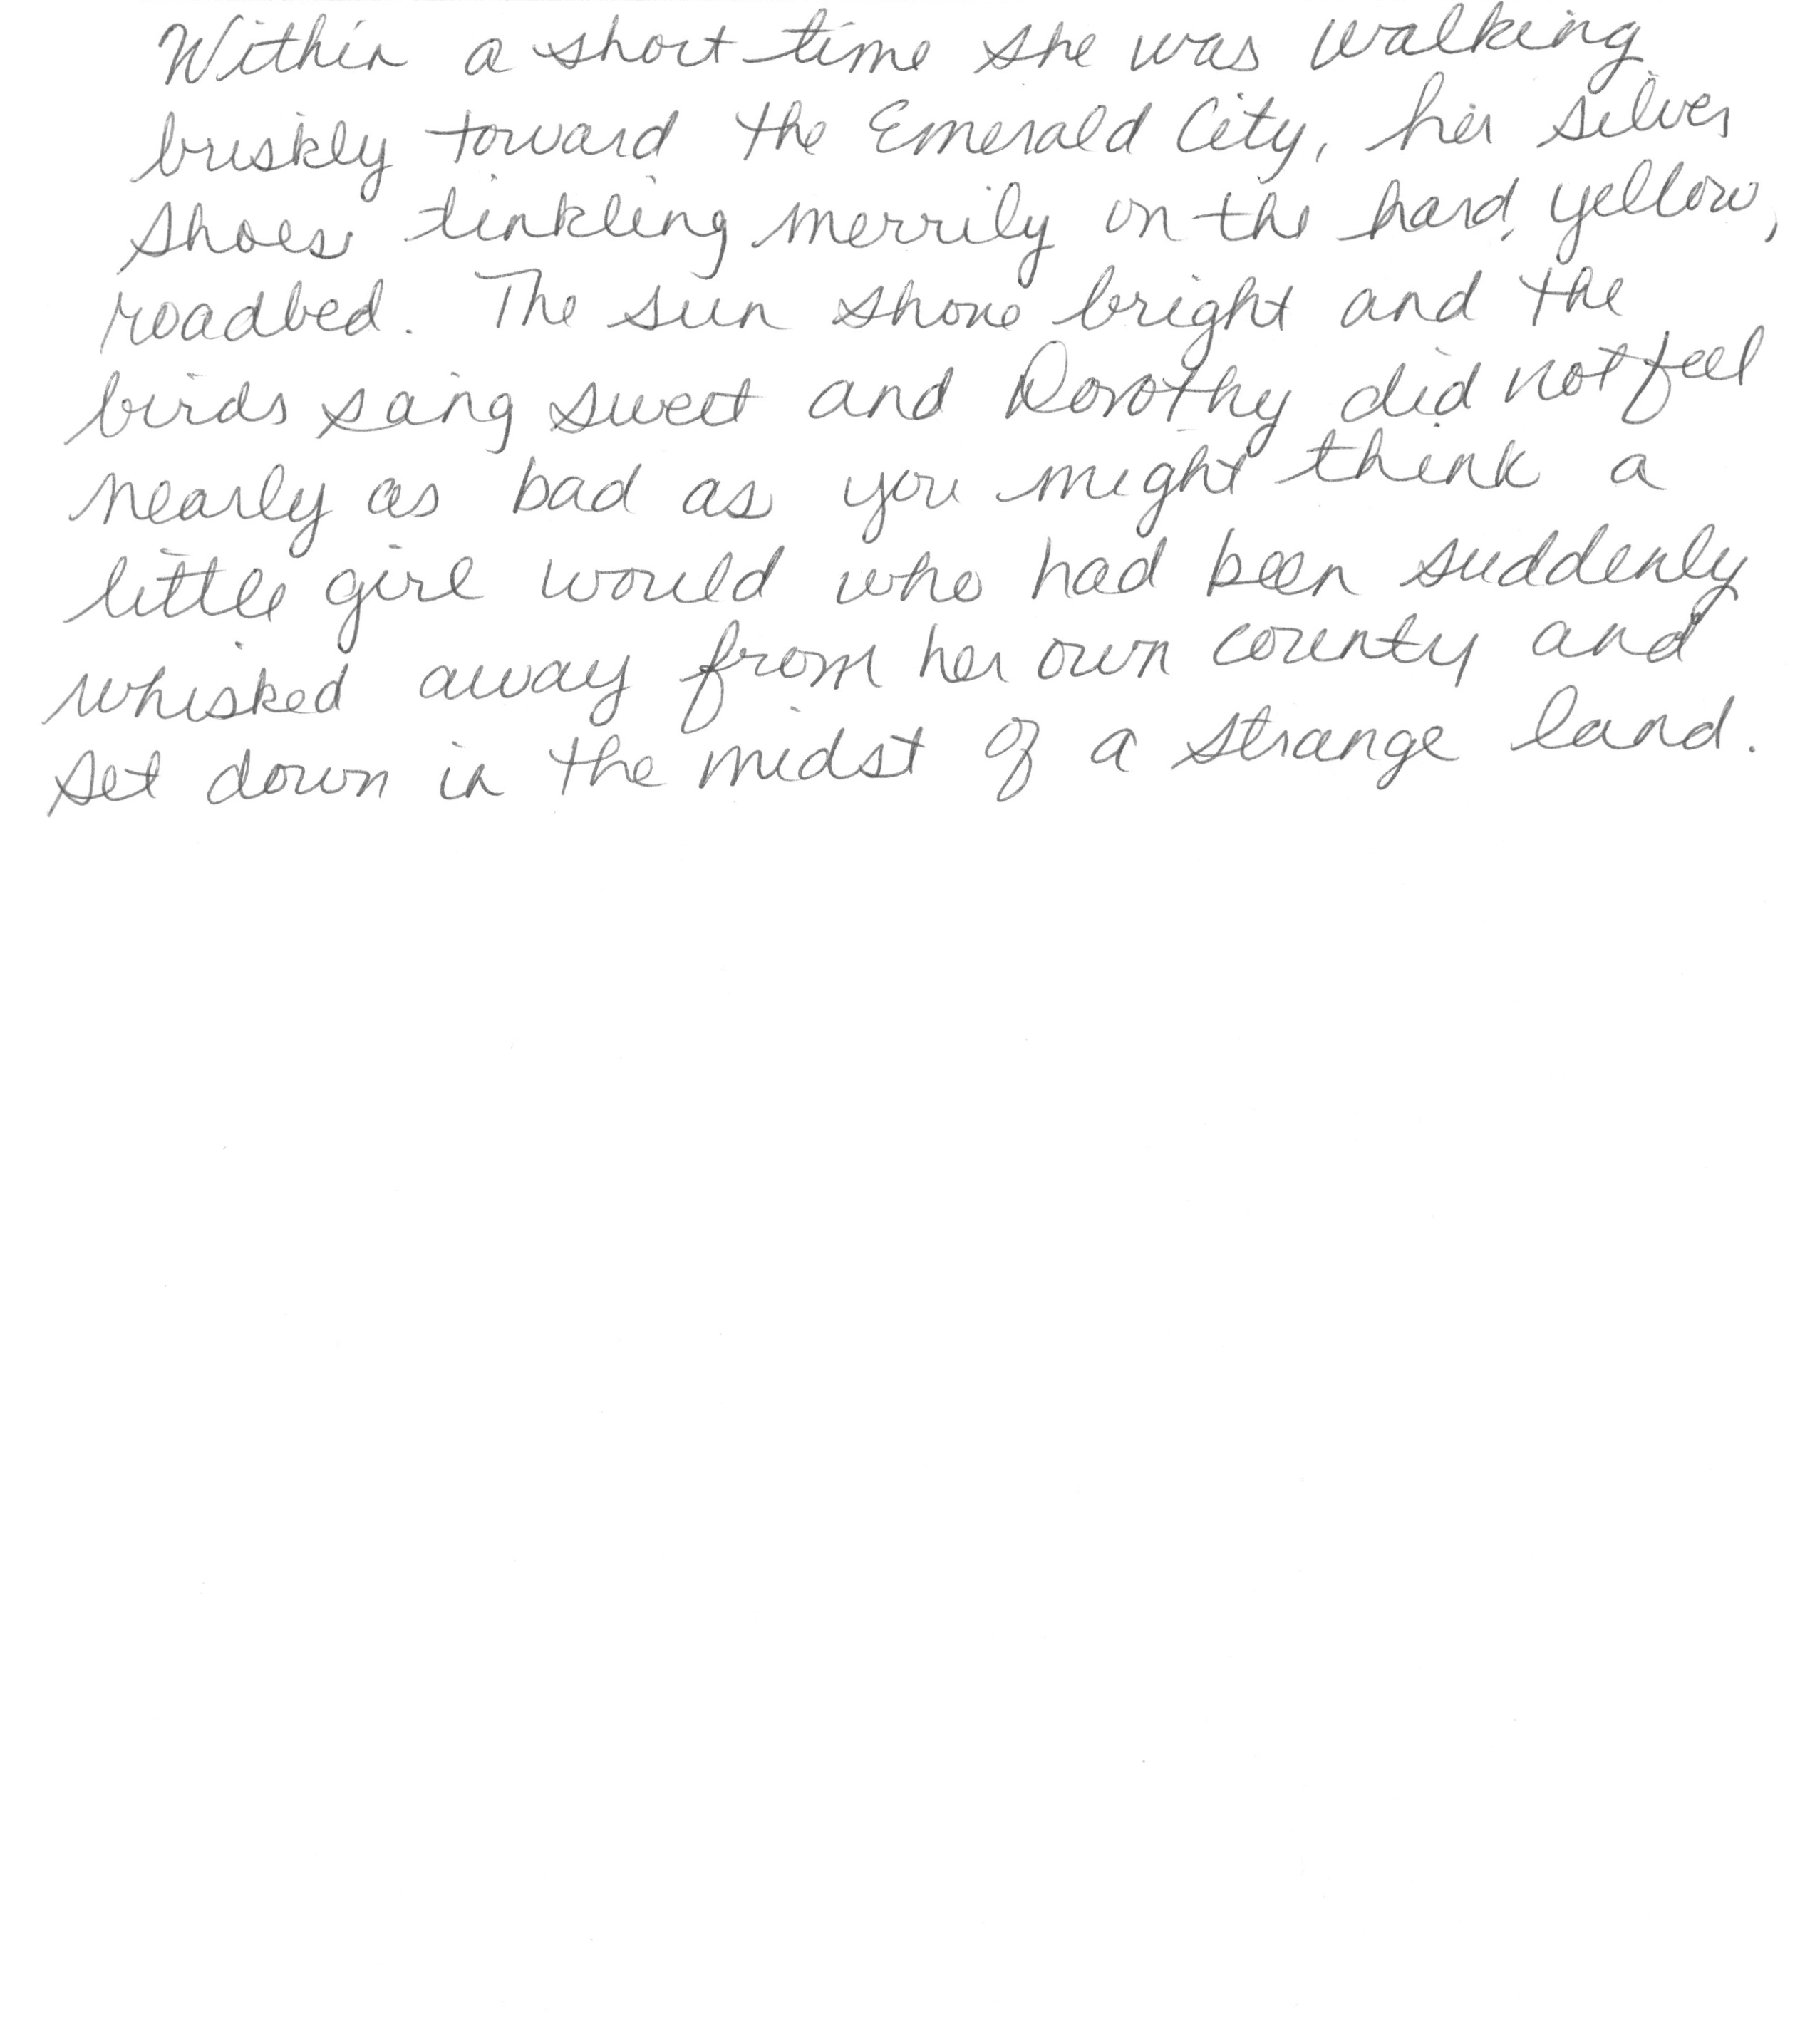 Within a short time she was walking
briskly toward the Emerald City, her silver
shoes tinkling merrily on the hard, yellow,
roadbed. The sun shone bright and the
birds sang sweet and Dorothy did not feel
nearly as bad as you might think a
little girl would who had been suddenly
whisked away from her own county and
set down in the midst of a strange land.